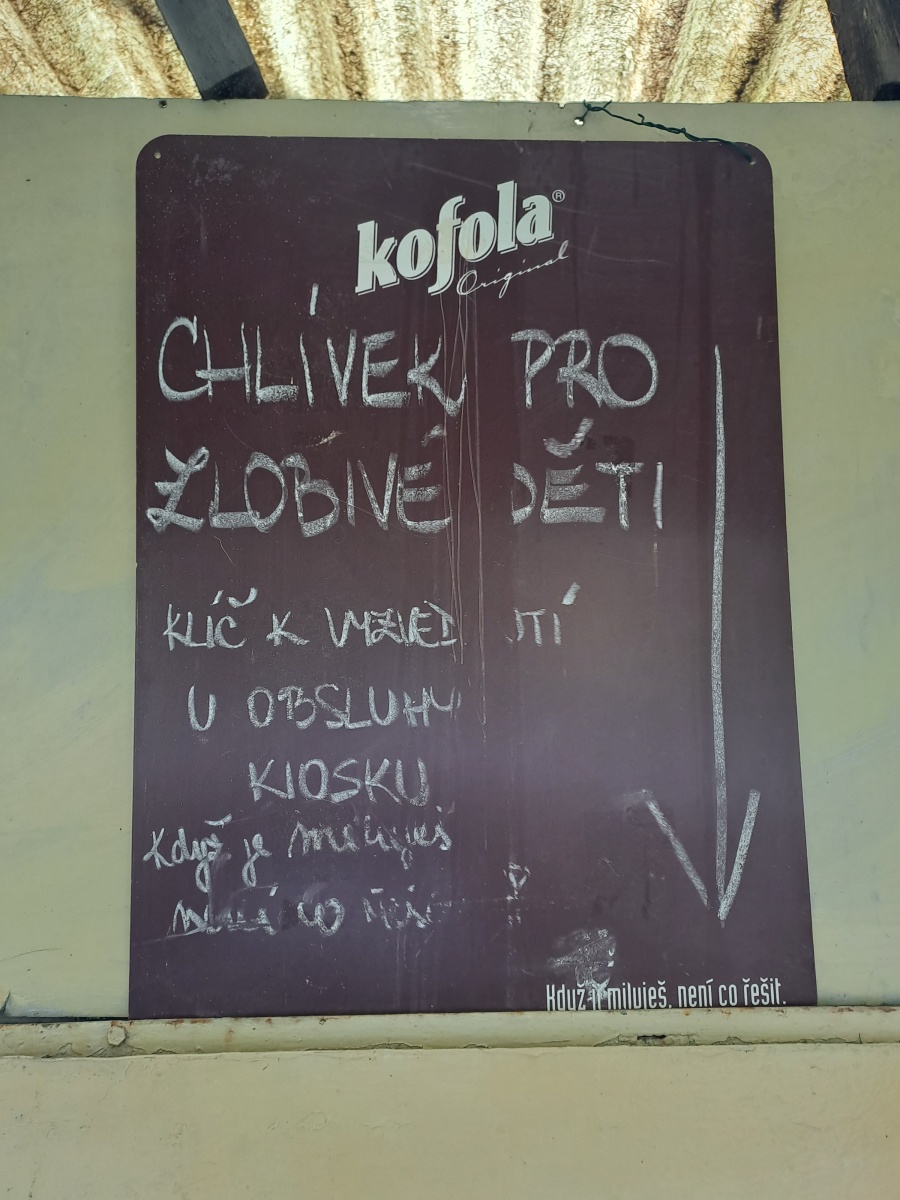 kofola®
Original
CHLÍVEK PRO
ZLOBIVÉ DĚTI
KLÍČ K
U OBSLUHY
KIOSKU
Když je miluješ
není co řeší
Když ji miluješ, není co řešit.